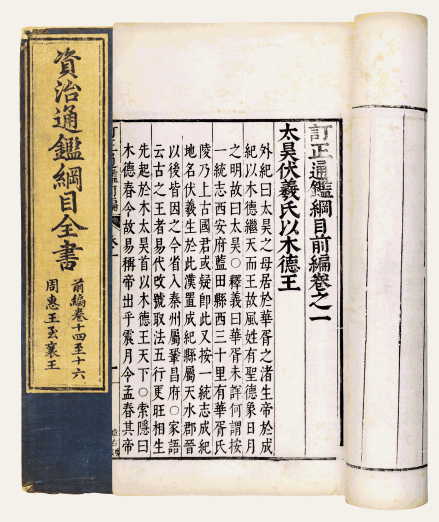 資治通鑑綱目全書
前編卷十四至十六
周惠王至襄王
訂正通鑑綱目前編卷之一
太昊伏羲氏以木德王
外紀曰太昊之母居於華胥之渚生帝於成
紀以木德繼天而王故風姓有聖德象日月
之明故曰太昊○釋義曰華胥未詳何謂按
一統志西安府藍田縣西三十里有華胥氏
陵乃上古國君或疑即此又按一統志成紀
地名伏羲生於此漢置成紀縣屬天水郡晉
以後皆因之今省入秦州屬鞏昌府○家語
云古之王者易代改號取法五行更旺相生
先起於木太昊首以木德王天下○索隱曰
木德春令故易稱帝出乎震月令孟春其帝